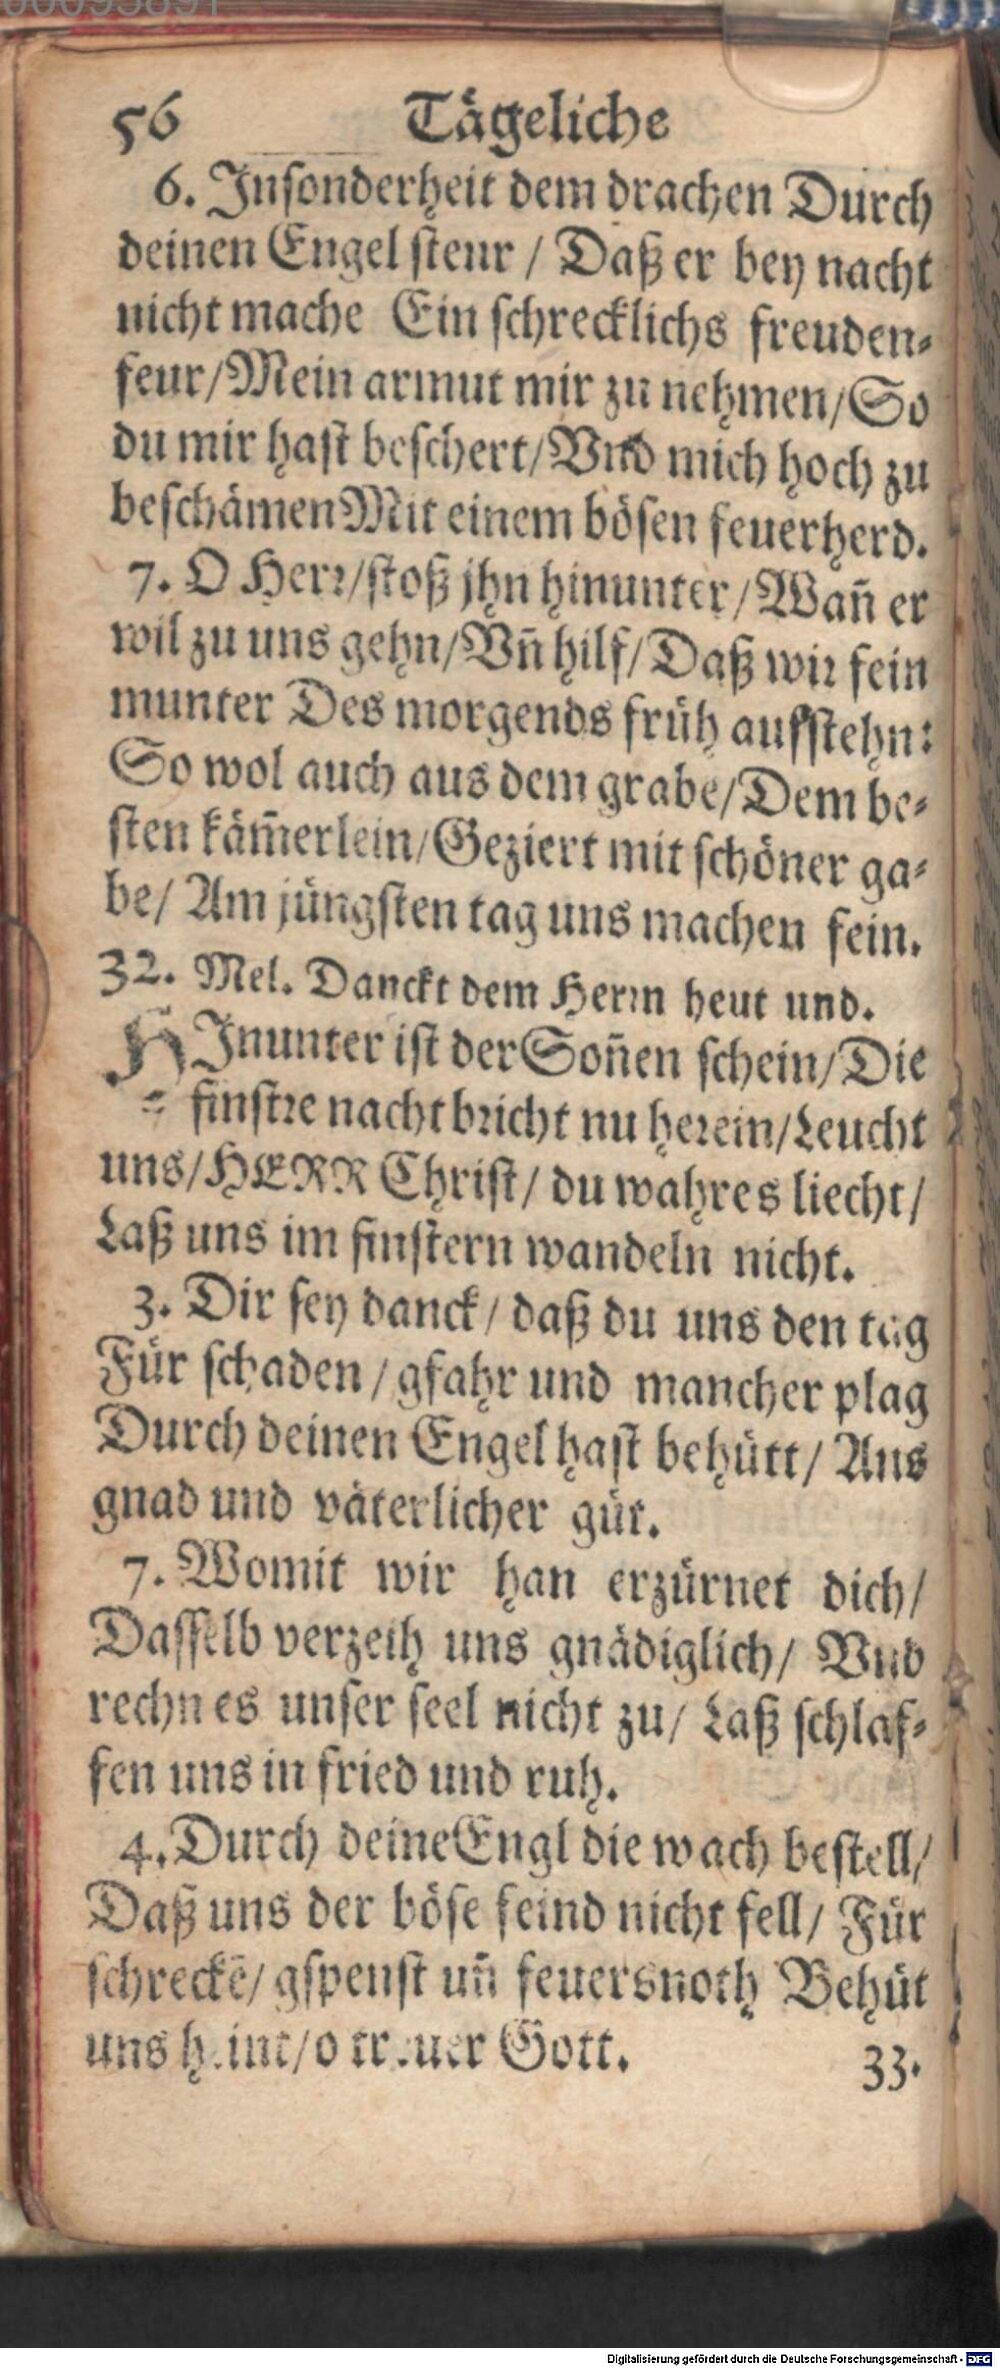 56 Tägeliche
6. Jnſonderheit dem drachen Durch
deinen Engel ſteur / Daß er bey nacht
nicht mache Ein ſchrecklichs freuden⸗
feur/Mein armut mir zu nehmen/So
du mir haſt beſchert/Vnd mich hoch zu
beſchämen Mit einem böſen feuerherd.
7. O Herꝛ/ſtoß jhn hinunter/Wañ er
wil zu uns gehn/Vñ hilf/Daß wiꝛ fein
munter Des morgends früh aufſtehn:
So wol auch aus dem grabe/Dem be⸗
ſten käm̄erlein/Geziert mit ſchöner ga⸗
be/ Am jüngſten tag uns machen fein.
32. Mel. Danckt dem Herꝛn heut und.
HJnunter iſt der Soñen ſchein/Die
finſtꝛe nacht bꝛicht nu heꝛein/Leucht
uns/HERR Chriſt/ du wahres liecht/
Laß uns im finſtern wandeln nicht.
3. Dir ſey danck/ daß du uns den tag
Für ſchaden/gfahr und mancher plag
Durch deinen Engel haſt behütt/ Aus
gnad und väterlicher güt.
7. Womit wir han erzürnet dich/
Daſſelb verzeih uns gnädiglich/ Vnd
rechn es unſer ſeel nicht zu/ Laß ſchlaf⸗
fen uns in fried und ruh.
4. Durch deine Engl die wach beſtell/
Daß uns der böſe feind nicht fell/ Für
ſchreckē/ gſpenſt uñ feuersnoth Behüt
uns heint/o treuer Gott.
33.
Digitalisierung gefördert durch die Deutsche Forschungsgemeinschaft - DFG